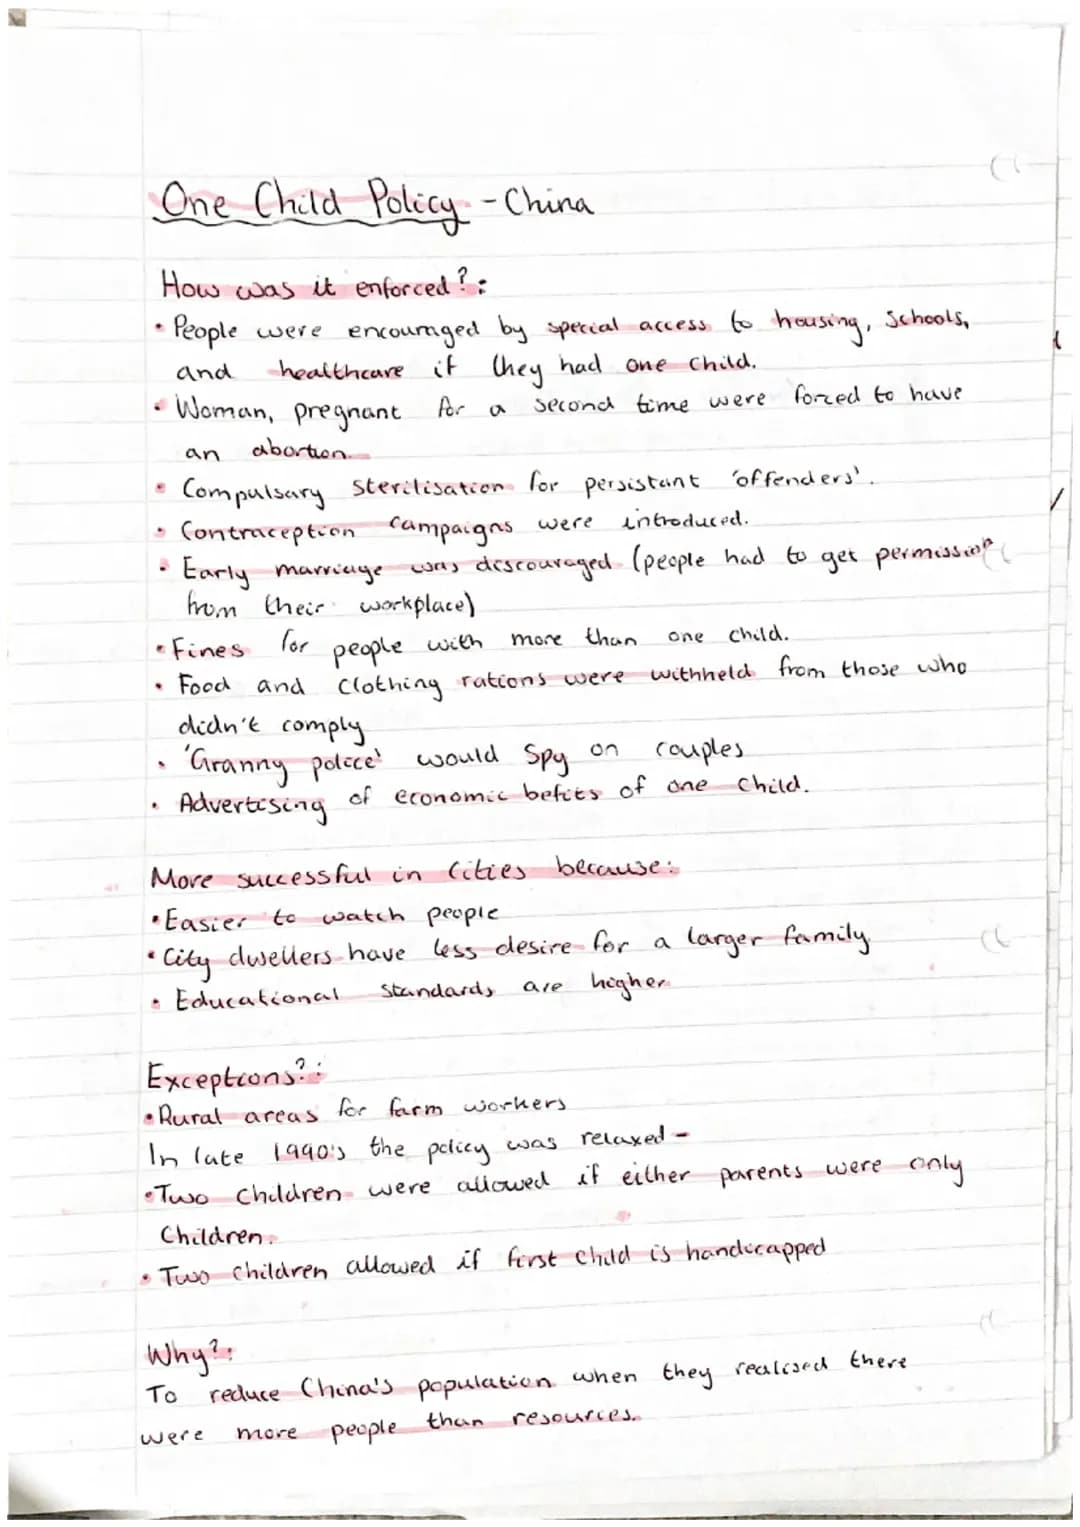 One Child Policy - China
How was it enforced?:
• People were encouraged by special access to housing, schools,
and healthcare if they had one child.
• Woman, pregnant for a second time were forced to have
an abortion.
• Compulsary sterilisation for persistant 'offenders'.
• Contraception campaigns were introduced.
• Early marriage was discouraged (people had to get permission
from their workplace)
• Fines for people with more than one child.
• Food and clothing rations were withheld from those who
didn't comply
• 'Granny police' would spy on couples
• Advertising of economic befits of one child.
More successful in cities because:
• Easier to watch people
• City dwellers have less desire for a larger family
• Educational standards are higher
Exceptions?:
• Rural areas for farm workers
In late 1990's the policy was relaxed -
• Two children were allowed if either parents were only
children.
• Two children allowed if first child is handicapped
Why?:
To reduce China's population when they realised there
were more people than resources.